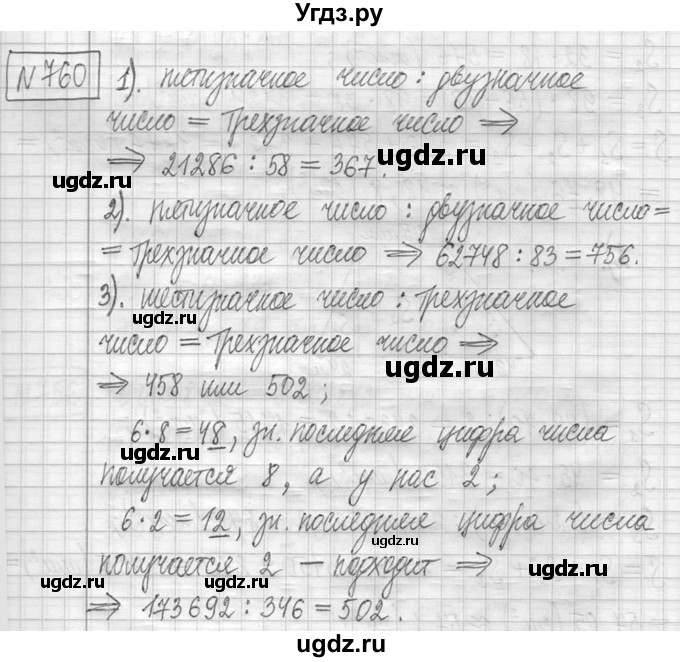 Угдз.ру
№760 1). пятизначное число : двузначное
число = Трехзначное число ⇒
⇒ 21286 : 58 = 367.
ugdz.ru
ugdz.ru
2). пятизначное число : двузначное число =
= Трехзначное число ⇒ 62748 : 83 = 756.
ugdz.ru
3). шестизначное число : Трехзначное
ugdz.ru
число = Трехзначное число ⇒
ugdz.ru
⇒ 458 или 502;
6·8=48, зн. последняя цифра числа
ugdz.ru
получается 8, а у нас 2;
6·2=12, зн. последняя цифра числа
ugdz.ru
получается 2 – подходит ⇒
ugdz.ru
ugdz.ru
⇒ 173692 : 346 = 502.
ugdz.ru